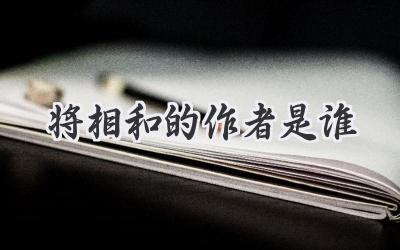 将相和的作者是谁